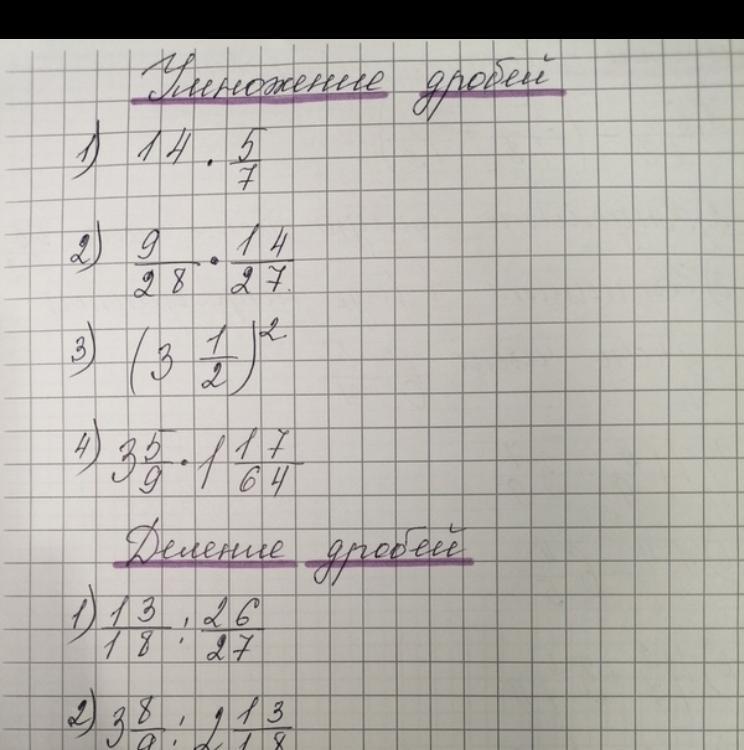 Умножение дробей
1) 14 · 5/7
2) 9/28 · 14/27
3) (3 1/2)²
4) 3 5/9 · 1 17/64
Деление дробей
1) 13/18 : 26/27
2) 3 8/9 : 2 13/18